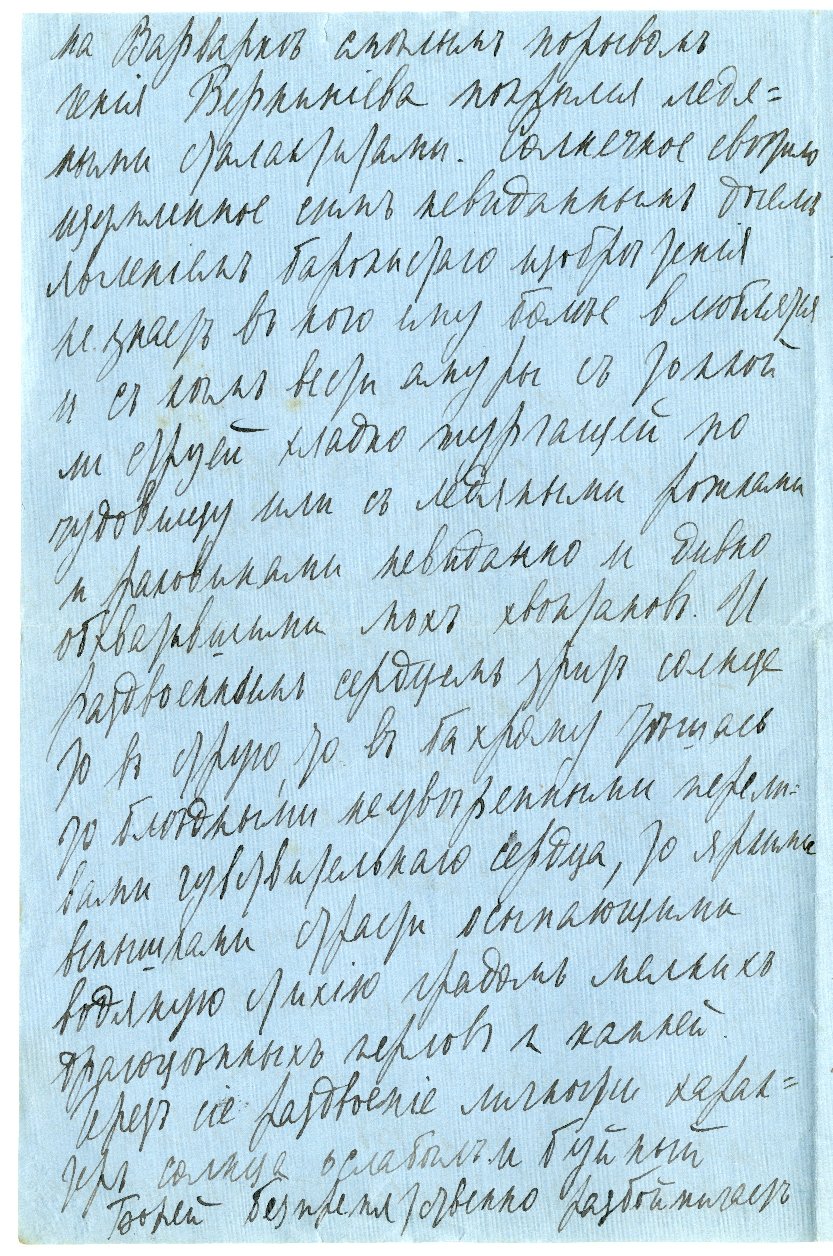 на Варваркѣ смѣлымъ порывомъ
генія Бернинiева покрылся ледя=
ными сталактитами. Солнечное свѣтило
изумленное симъ невиданнымъ доселѣ
явленіемъ барочистаго изобрѣтенія
не знаетъ въ кого ему болѣе влюбляться
и съ кѣмъ вести амуры съ тонкой
ли струей хладно журчащей по
чудовищу или съ ледяными рожками
и раковинами невиданно и дивно
обхватившими мохъ хвостановъ. И
раздвоеннымъ сердцемъ зритъ солнце
то въ струю, то въ бахрому тѣшась
то блѣдными неувѣренными перели=
вами чувствительнаго сердца, то яркими
вспышками страсти осыпающими
водяную стихію градомъ мелкихъ
драгоцѣнныхъ перловъ и камней.
Чрезъ сіе раздвоеніе личности харак=
теръ солнца ослабѣлъ и буйный
Борей безпрепятственно разбойничаетъ